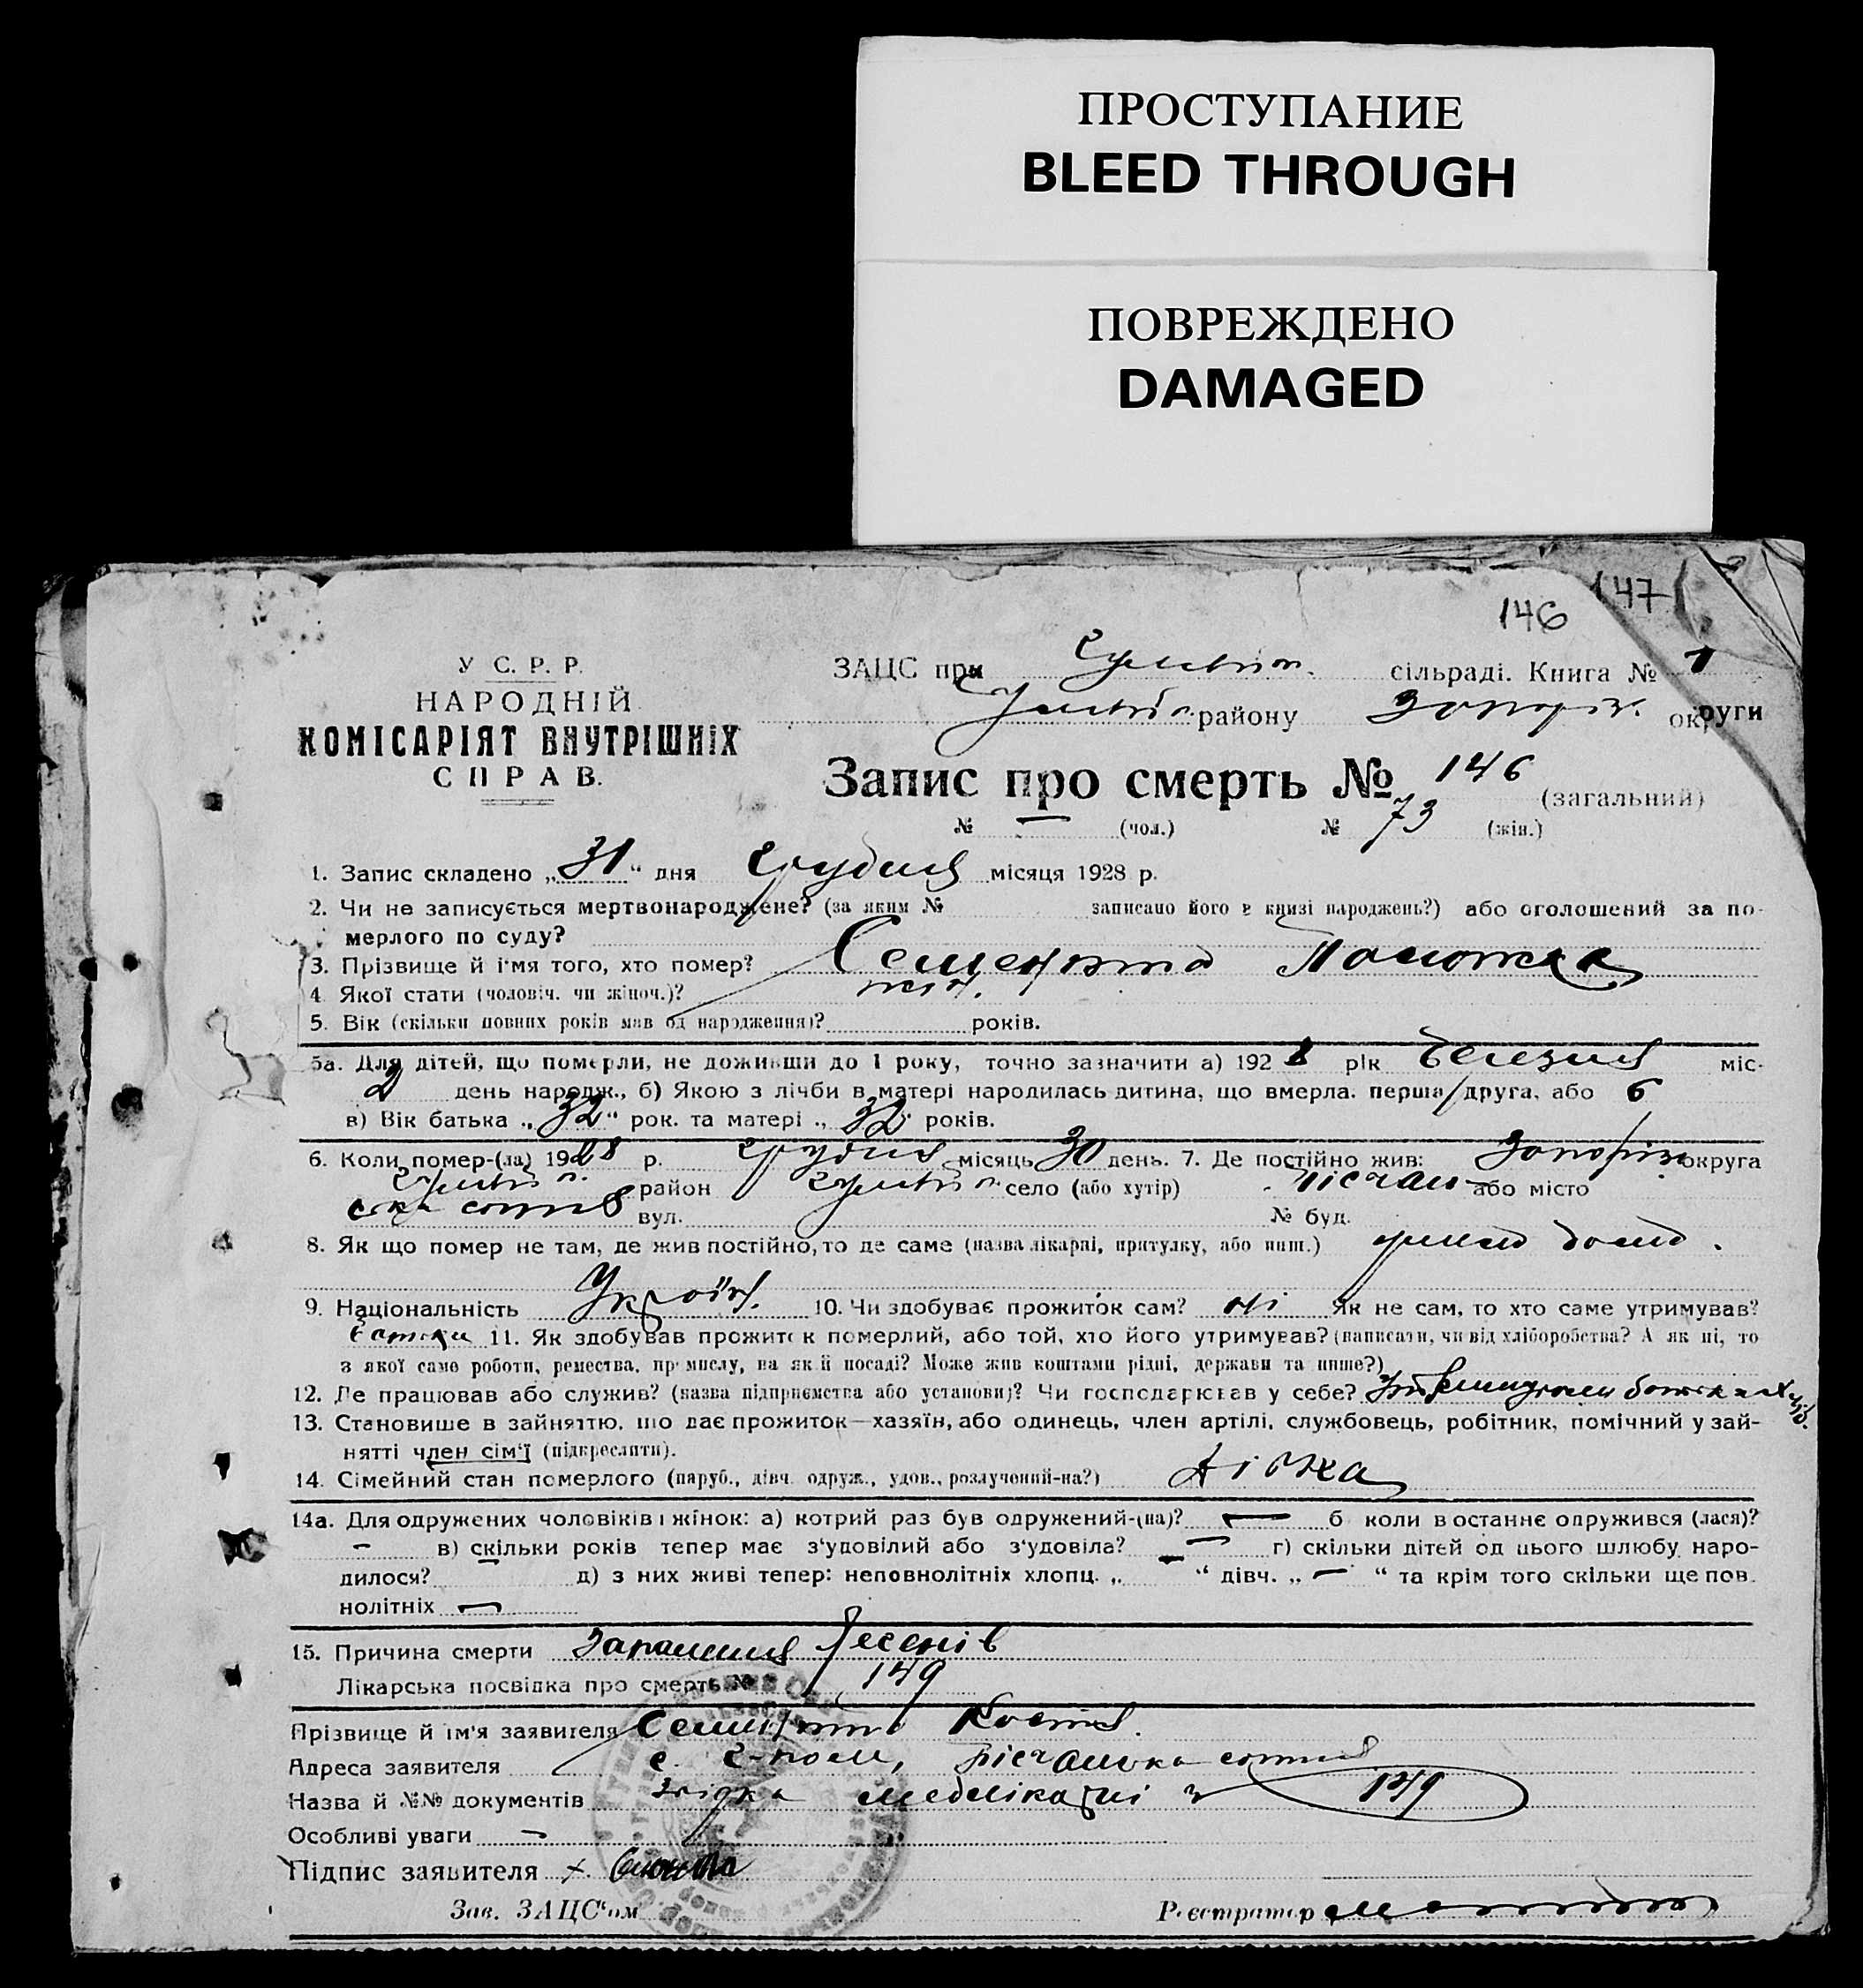 ПРОСТУПАНИЕ
BLEED THROUGH
ПОВРЕЖДЕНО
DAMAGED
147
146
У С. Р. Р.
НАРОДНІЙ
КОМІСАРІЯТ ВНУТРІШНІХ
СПРАВ.
ЗАЦС при сільраді. Книга № 1
району Запоріз. округи
Запис про смерть № 146 (загальний)
№ — (чол.) № 73 (жін.)
1. Запис складено „31“ дня грудня місяця 1928 р.
2. Чи не записується мертвонароджене? (за яким № записано його в книзі народжень?) або оголошений за по-
мерлого по суду?
3. Прізвище й ім'я того, хто помер?
4. Якої статі (чоловіч. чи жіноч.)? жін.
5. Вік (скільки повних років мав од народження)? років.
5а. Для дітей, що померли, не доживши до 1 року, точно зазначити а) 1928 рік Березня міс.
2 день народж., б) Якою з лічби в матері народилась дитина, що вмерла. перша/друга, або 6
в) Вік батька „32“ рок. та матері „32“ років.
6. Коли помер-(ла) 1928 р. грудня місяць 30 день. 7. Де постійно жив: Запоріз округа
район село (або хутір) або місто
вул. № буд.
8. Як що помер не там, де жив постійно, то де саме (назва лікарні, притулку, або инш.) дома.
9. Національність Україн. 10. Чи здобуває прожиток сам? ні Як не сам, то хто саме утримував?
Батьки 11. Як здобував прожиток померлий, або той, хто його утримував? (написати, чи від хліборобства? А як ні, то
з якої саме роботи, ремества, промислу, на якій посаді? Може жив коштами рідні, держави та инше?)
12. Де працював або служив? (назва підприємства або установи)? Чи господарював у себе?
13. Становище в зайняттю, що дає прожиток—хазяїн, або одинець, член артілі, службовець, робітник, помічний у зай-
нятті член сім'ї (підкреслити).
14. Сімейний стан померлого (паруб., дівч. одруж., удов., розлучений-на?) дівка
14а. Для одружених чоловіків і жінок: а) котрий раз був одружений-(на)? — б коли востаннє одружився (лася)?
— в) скільки років тепер має з'удовілий або з'удовіла? — г) скільки дітей од цього шлюбу наро-
дилося? — д) з них живі тепер: неповнолітніх хлопц. „ — “ дівч. „ — “ та крім того скільки ще пов.
нолітніх —
15. Причина смерти Запалення легенів
Лікарська посвідка про смерть № 149
Прізвище й ім'я заявителя
Адреса заявителя с.
Назва й №№ документів 149
Особливі уваги —
Підпис заявителя
Зав. ЗАЦС'ом Реєстратор